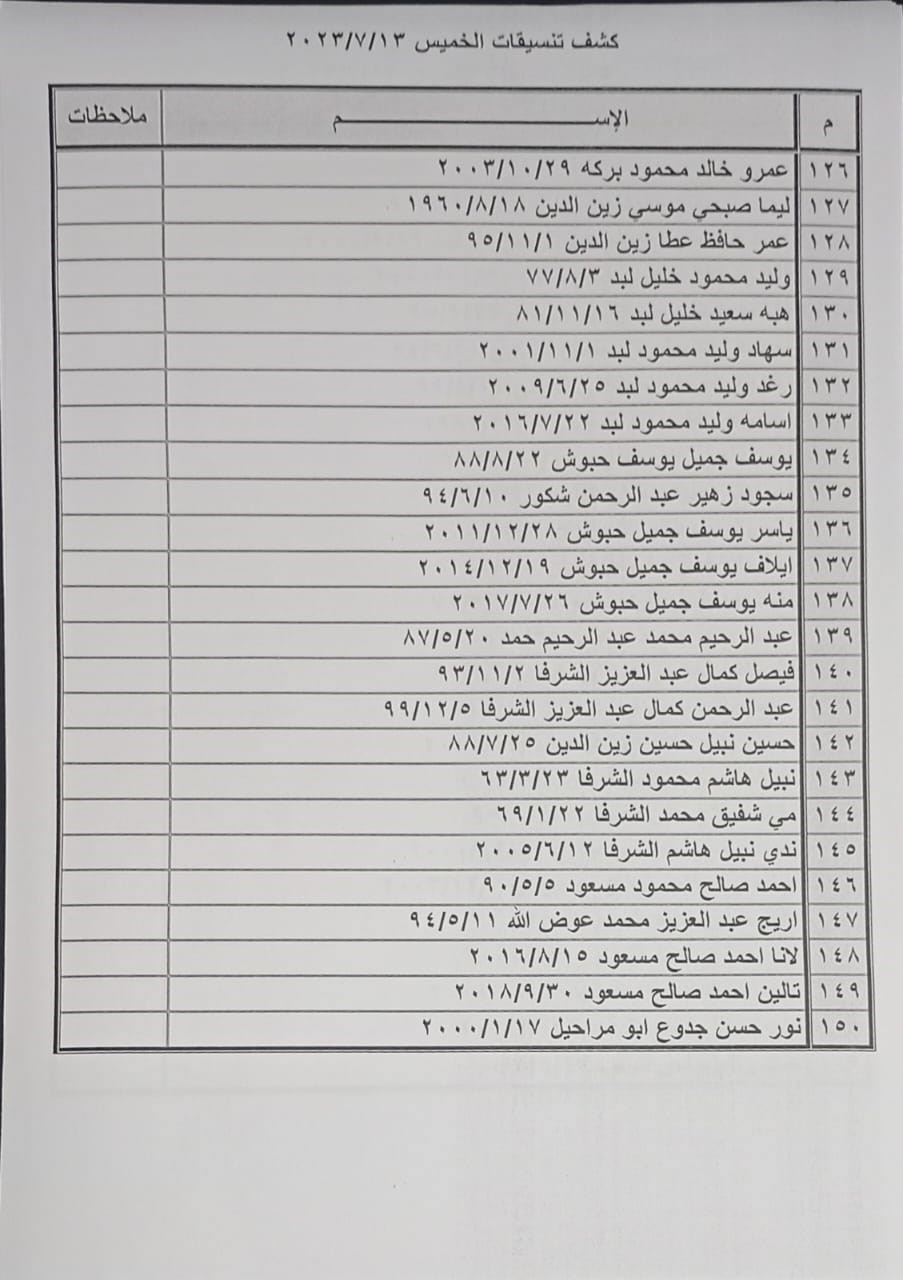 كشف تنسيقات الخميس ٢٠٢٣/٧/١٣
م الإســـــم ملاحظات
١٢٦ عمرو خالد محمود بركه ٢٠٠٣/١٠/٢٩
١٢٧ ليما صبحي موسي زين الدين ١٩٦٠/٨/١٨
١٢٨ عمر حافظ عطا زين الدين ٩٥/١١/١
١٢٩ وليد محمود خليل لبد ٧٧/٨/٣
١٣٠ هبه سعيد خليل لبد ٨١/١١/١٦
١٣١ سهاد وليد محمود لبد ٢٠٠١/١١/١
١٣٢ رغد وليد محمود لبد ٢٠٠٩/٦/٢٥
١٣٣ اسامه وليد محمود لبد ٢٠١٦/٧/٢٢
١٣٤ يوسف جميل يوسف حبوش ٨٨/٨/٢٢
١٣٥ سجود زهير عبد الرحمن شكور ٩٤/٦/١٠
١٣٦ ياسر يوسف جميل حبوش ٢٠١١/١٢/٢٨
١٣٧ ايلاف يوسف جميل حبوش ٢٠١٤/١٢/١٩
١٣٨ منه يوسف جميل حبوش ٢٠١٧/٧/٢٦
١٣٩ عبد الرحيم محمد عبد الرحيم حمد ٨٧/٥/٢٠
١٤٠ فيصل كمال عبد العزيز الشرفا ٩٣/١١/٢
١٤١ عبد الرحمن كمال عبد العزيز الشرفا ٩٩/١٢/٥
١٤٢ حسين نبيل حسين زين الدين ٨٨/٧/٢٥
١٤٣ نبيل هاشم محمود الشرفا ٦٣/٣/٢٣
١٤٤ مي شفيق محمد الشرفا ٦٩/١/٢٢
١٤٥ ندي نبيل هاشم الشرفا ٢٠٠٥/٦/١٢
١٤٦ احمد صالح محمود مسعود ٩٠/٥/٥
١٤٧ اريج عبد العزيز محمد عوض الله ٩٤/٥/١١
١٤٨ لانا احمد صالح مسعود ٢٠١٦/٨/١٥
١٤٩ تالين احمد صالح مسعود ٢٠١٨/٩/٣٠
١٥٠ نور حسن جدوع ابو مراحيل ٢٠٠٠/١/١٧